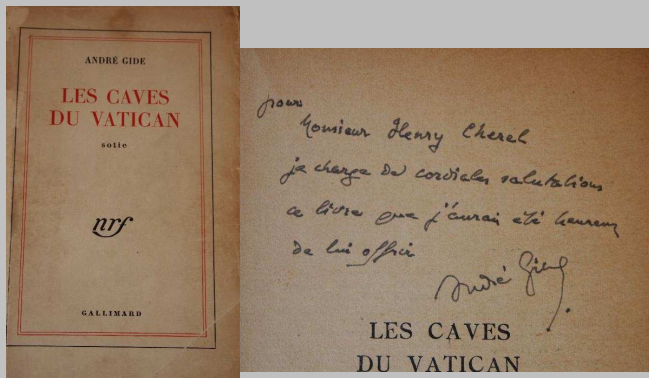 ANDRÉ GIDE
LES CAVES
DU VATICAN
sotie
nrf
GALLIMARD
pour
Monsieur Henry Cherel
je charge de cordiales salutations
ce livre que j'aurais été heureux
de lui offrir
André Gide
LES CAVES
DU VATICAN